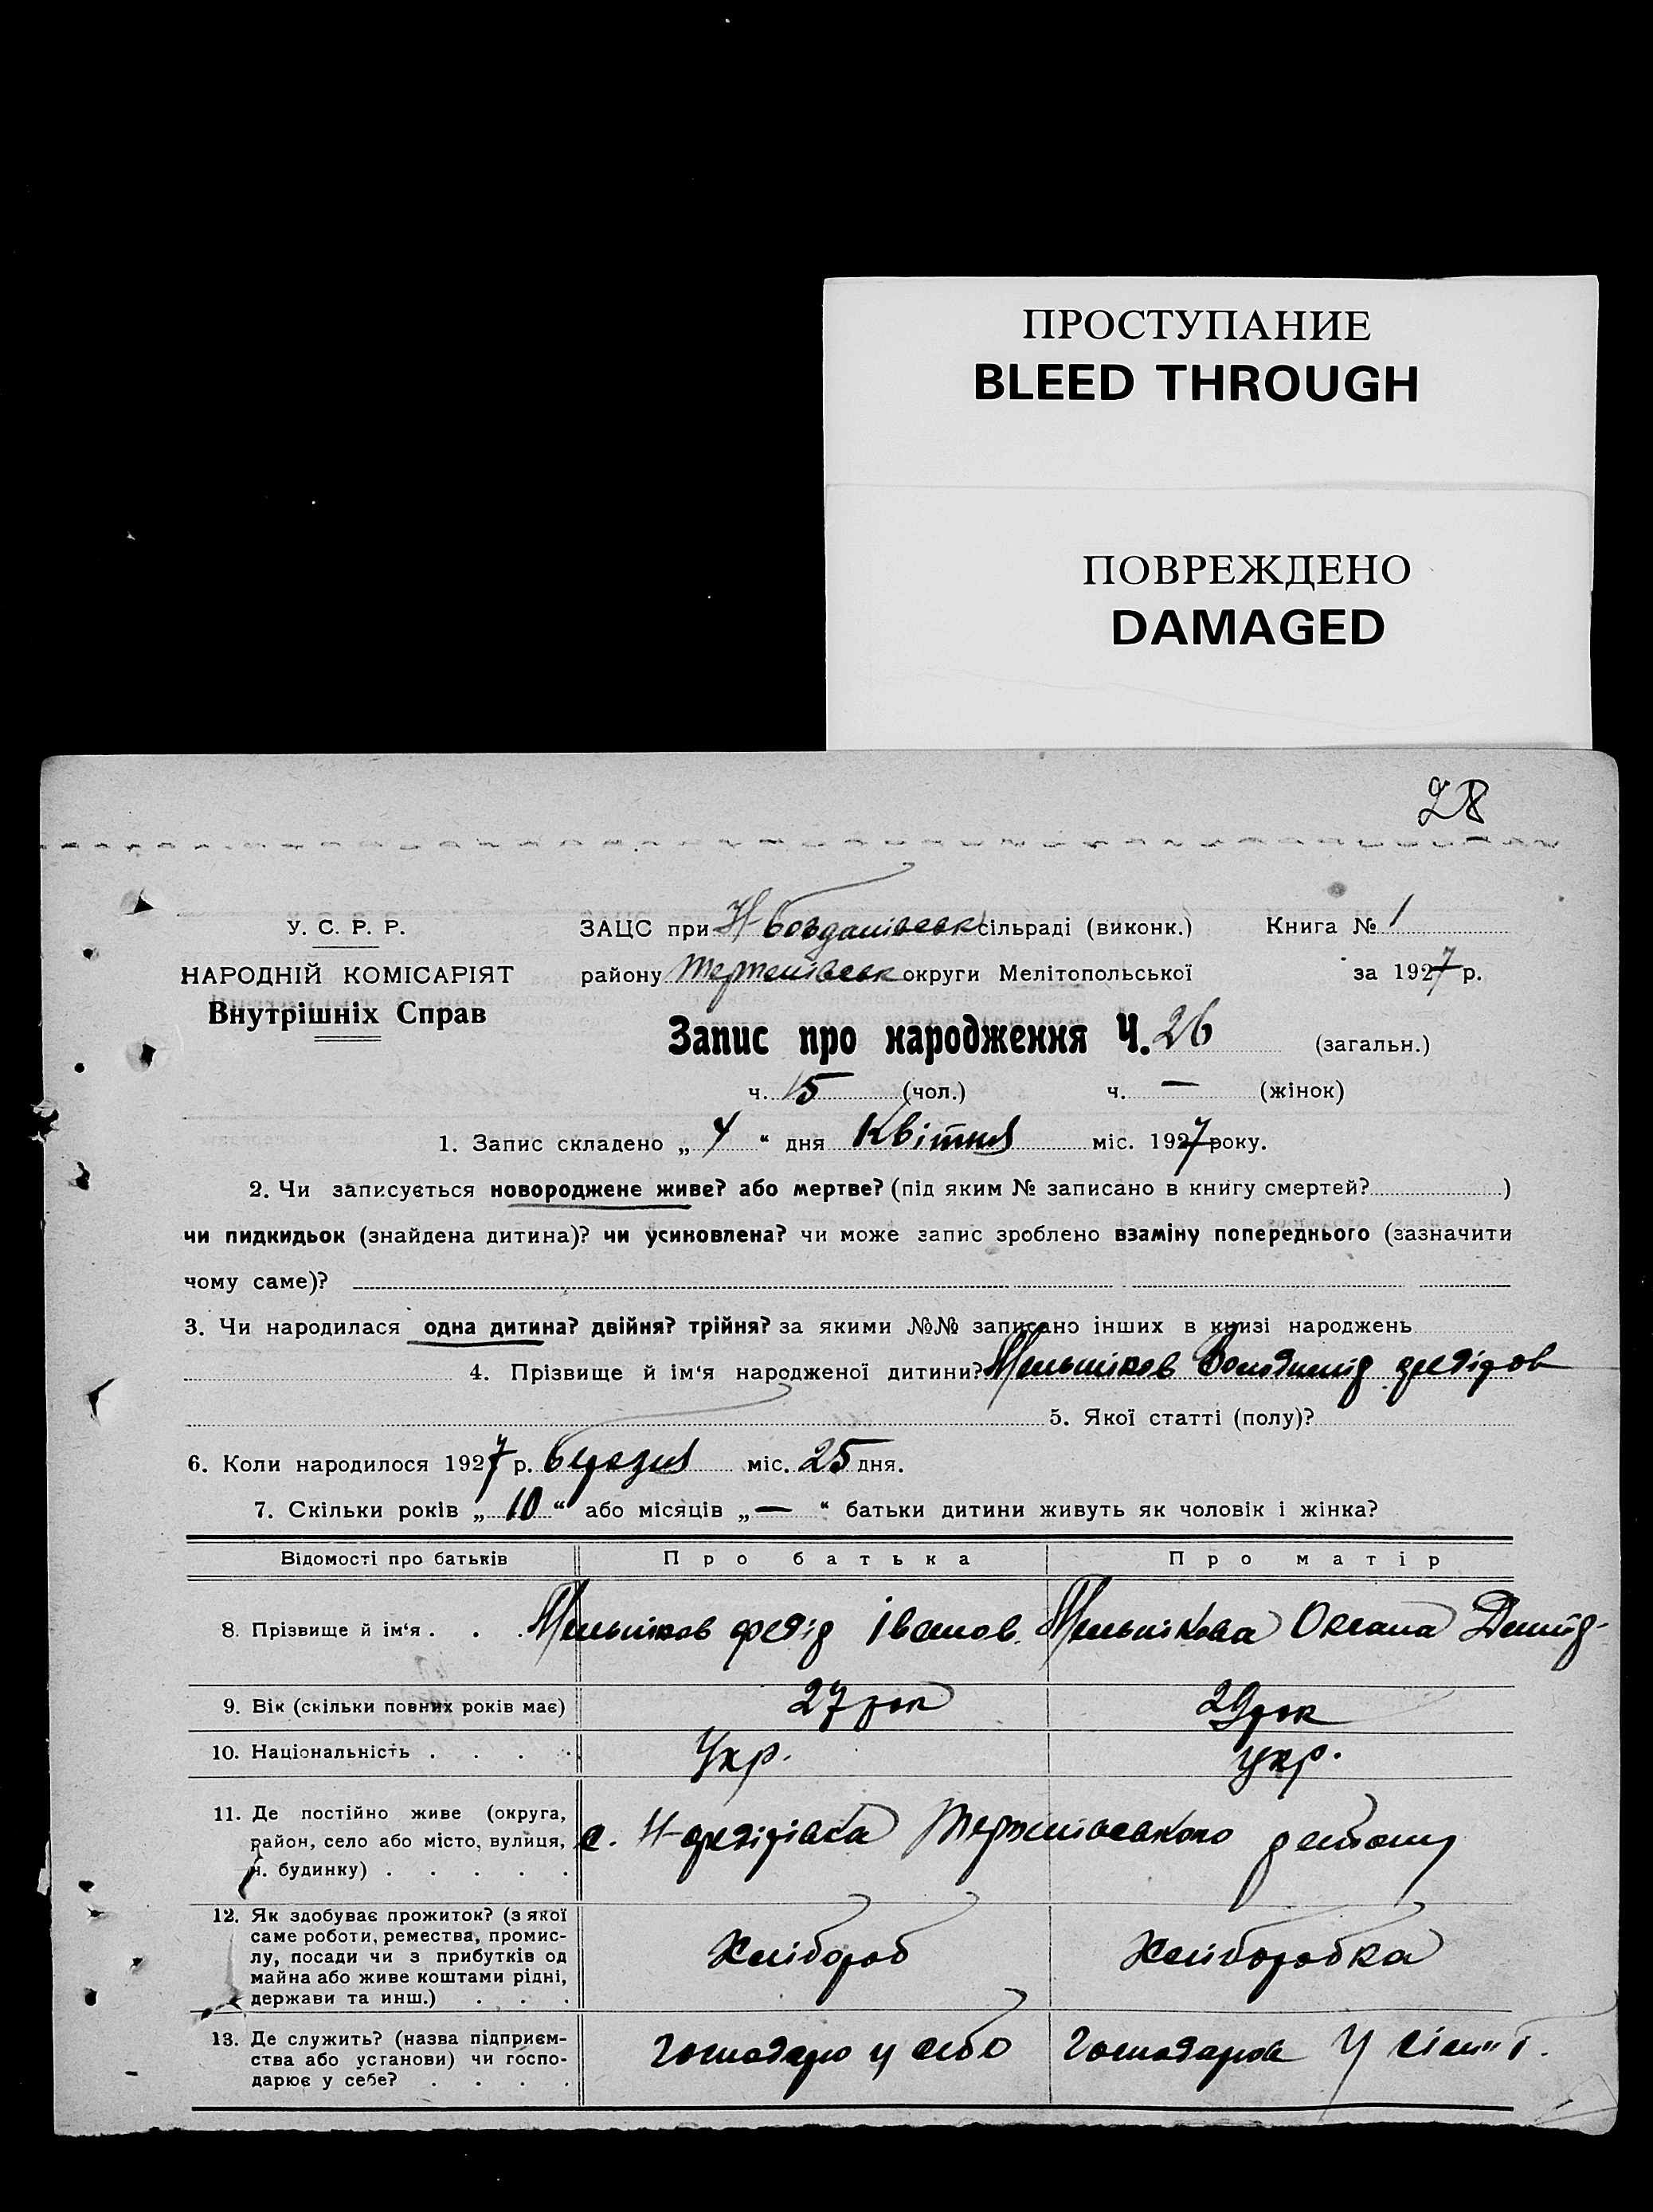 ПРОСТУПАНИЕ
BLEED THROUGH
ПОВРЕЖДЕНО
DAMAGED
28
У. С. Р. Р.
НАРОДНІЙ КОМІСАРІЯТ
Внутрішніх Справ
ЗАЦС при Н-Богданівськ сільраді (виконк.) Книга № 1
району Терпенівськ округи Мелітопольської за 1927 р.
Запис про народження Ч. 26 (загальн.)
ч. 15 (чол.) ч. — (жінок)
1. Запис складено „ 4 “ дня Квітня міс. 1927 року.
2. Чи записується новороджене живе? або мертве? (під яким № записано в книгу смертей? )
чи пидкидьок (знайдена дитина)? чи усиновлена? чи може запис зроблено взаміну попереднього (зазначити
чому саме)?
3. Чи народилася одна дитина? двійня? трійня? за якими №№ записано інших в книзі народжень
4. Прізвище й ім‘я народженої дитини? Мельніков Володимір Федіров
5. Якої статті (полу)?
6. Коли народилося 1927 р. березня міс. 25 дня.
7. Скільки років „ 10 “ або місяців „ — “ батьки дитини живуть як чоловік і жінка?
Відомості про батьків Про батька Про матір
8. Прізвище й ім‘я . . . Мельніков Федір Іванов. Мельнікова Оксана Демид-
9. Вік (скільки повних років має) 27 рок 29 рок
10. Національність . . . . Укр. укр.
11. Де постійно живе (округа,
район, село або місто, вулиця,
н. будинку) . . . . .
с. Н-Федірівка Терпенівського району
12. Як здобуває прожиток? (з якої
саме роботи, ремества, промис-
лу, посади чи з прибутків од
майна або живе коштами рідні,
держави та инш.) . . .
Хлібороб Хліборобка
13. Де служить? (назва підприєм-
ства або установи) чи госпо-
дарює у себе? . . . .
Господарю у себе Господарює у